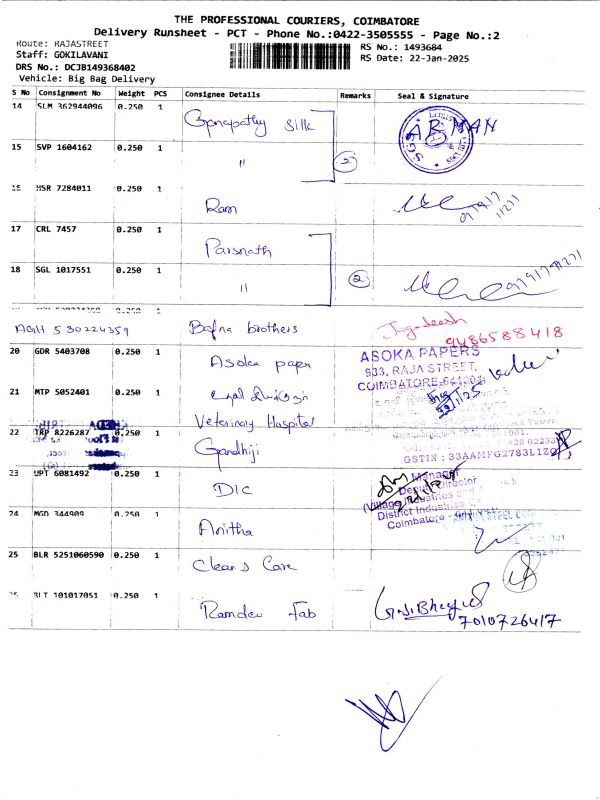 THE PROFESSIONAL COURIERS, COIMBATORE
Delivery Runsheet - PCT - Phone No.:0422-3505555 - Page No.:2
Route: RAJASTREET
RS No.: 1493684
Staff: GOKILAVANI
RS Date: 22-Jan-2025
DRS No.: DCJB149368402
Vehicle: Big Bag Delivery
S No Consignment No Weight PCS Consignee Details Remarks Seal & Signature
14 SLM 362944096 0.250 1 Ganapathy Silk ARMAN
15 SVP 1604162 0.250 1 " 2
16 HSR 7284011 0.250 1 Ram
17 CRL 7457 0.250 1 Parsnath
18 SGL 1017551 0.250 1 " 2
AGH 530224359 Bafna brothers Jagadeesh
9486588418
20 GDR 5403708 0.250 1 Asoka paper
ASOKA PAPERS
933, RAJA STREET,
COIMBATORE-641001
21 MTP 5052401 0.250 1
Veterinary Hospital
22 TRP 8226287 0.250 1 Gandhiji
GSTIN : 33AAMFG2783L1ZO
23 UPT 6081492 0.250 1 DIC
Manager
Deputy Director
(Village Industries and
District Industries
Coimbatore
24 MGD 344909 0.250 1 Anitha
25 BLR 5251060590 0.250 1 Clean & Care
26 BLT 101017051 0.250 1 Ramdev Fab
7010726417